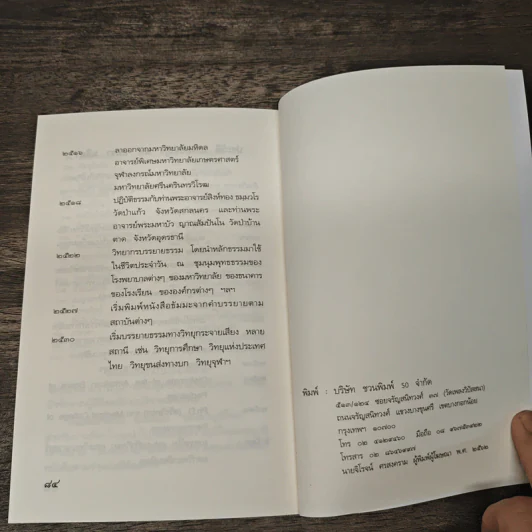 ๒๕๑๖ ลาออกจากมหาวิทยาลัยมหิดล
อาจารย์พิเศษมหาวิทยาลัยเกษตรศาสตร์
จุฬาลงกรณ์มหาวิทยาลัย
มหาวิทยาลัยศรีนครินทรวิโรฒ
๒๕๑๘ ปฏิบัติธรรมกับท่านพระอาจารย์สิงห์ทอง ธมฺมวโร
วัดป่าแก้ว จังหวัดสกลนคร และท่านพระ
อาจารย์พระมหาบัว ญาณสัมปันโน วัดป่าบ้าน
ตาด จังหวัดอุดรธานี
๒๕๒๒ วิทยากรบรรยายธรรม โดยนำหลักธรรมมาใช้
ในชีวิตประจำวัน ณ ชุมนุมพุทธธรรมของ
โรงพยาบาลต่างๆ ของมหาวิทยาลัย ของธนาคาร
ของโรงเรียน ขององค์กรต่างๆ ฯลฯ
๒๕๒๗ เริ่มพิมพ์หนังสือธัมมะจากคำบรรยายตาม
สถาบันต่างๆ
๒๕๓๐ เริ่มบรรยายธรรมทางวิทยุกระจายเสียง หลาย
สถานี เช่น วิทยุการศึกษา วิทยุแห่งประเทศ
ไทย วิทยุขนส่งทางบก วิทยุจุฬาฯ
๘๔
พิมพ์ : บริษัท ชวนพิมพ์ 50 จำกัด
๕๑๓/๑๒๔ ซอยจรัญสนิทวงศ์ ๓๗
ถนนจรัญสนิทวงศ์ แขวงบางขุนศรี เขตบางกอกน้อย
กรุงเทพฯ ๑๐๗๐๐
โทร ๐๒ มือถือ ๐๘
โทรสาร ๐๒
นายจิโรจน์ ศรสงคราม ผู้พิมพ์ผู้โฆษณา พ.ศ. ๒๕๖๒